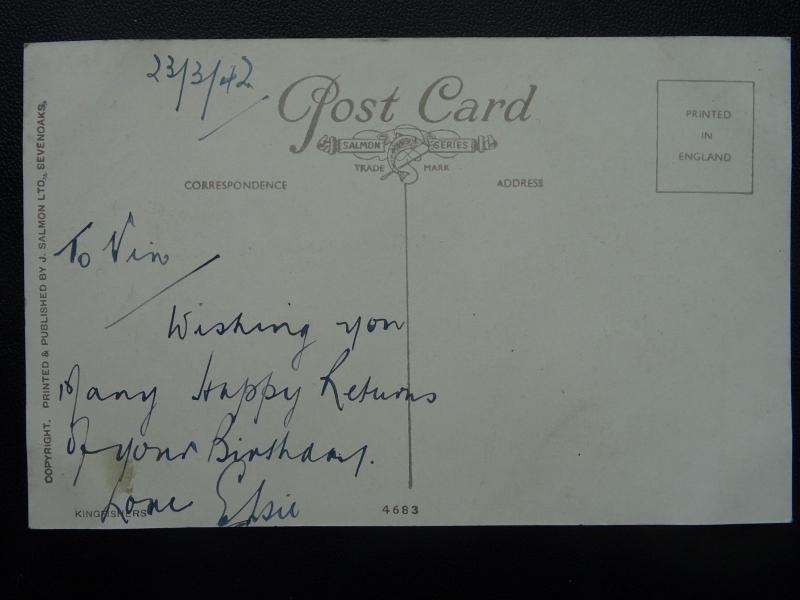 23/3/42
Post Card
SALMON SERIES
TRADE MARK
CORRESPONDENCE
ADDRESS
PRINTED
IN
ENGLAND
COPYRIGHT. PRINTED & PUBLISHED BY J. SALMON LTD., SEVENOAKS.
To Vin
Wishing you
Many Happy Returns
of your Birthday.
Love Elsie
KINGFISHERS
4683